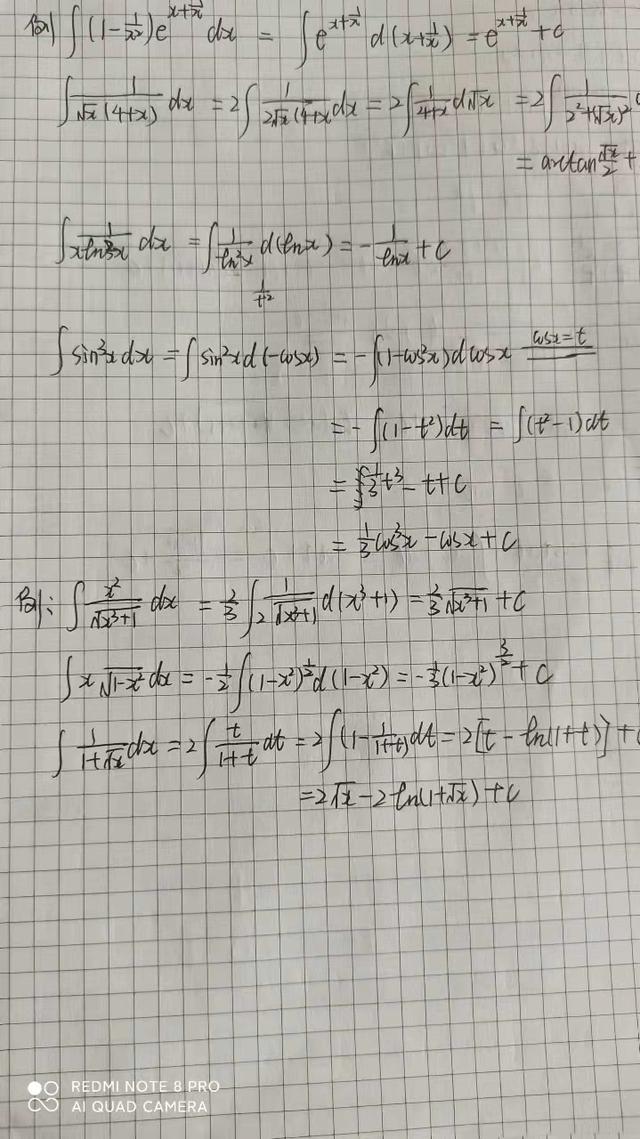 例 ∫(1-1/x²)e^(x+1/x) dx = ∫e^(x+1/x) d(x+1/x) = e^(x+1/x) + c
∫1/(√x(4+x)) dx = 2∫1/(2√x(4+x)) dx = 2∫1/(4+x) d√x = 2∫1/(2²+(√x)²)
= arctan √x/2 +
∫1/(xln²x) dx = ∫1/ln²x d(lnx) = -1/lnx + c
1/t²
∫sin³x dx = ∫sin²x d(-cosx) = -∫(1-cos²x) dcosx cosx=t
= -∫(1-t²)dt = ∫(t²-1)dt
= 1/3 t³ - t + c
= 1/3 cos³x - cosx + c
例: ∫x²/√(x³+1) dx = 2/3 ∫1/(2√(x³+1)) d(x³+1) = 2/3 √(x³+1) + c
∫x√(1-x²) dx = -1/2 ∫(1-x²)^(1/2) d(1-x²) = -1/3 (1-x²)^(3/2) + c
∫1/(1+√x) dx = 2∫t/(1+t) dt = 2∫(1-1/(1+t))dt = 2[t-ln(1+t)] + c
= 2√x - 2ln(1+√x) + c
REDMI NOTE 8 PRO
AI QUAD CAMERA